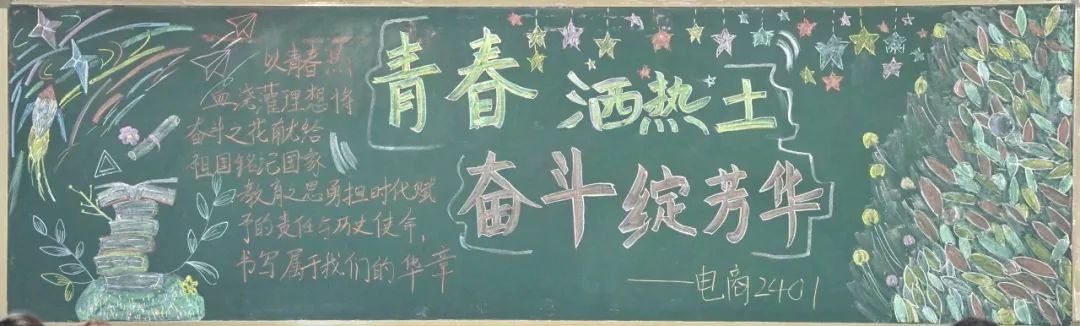 以青春热
血浇灌理想将
奋斗之花献给
祖国铭记国家
教育之恩勇担时代赋
予的责任与历史使命,
书写属于我们的华章
青春洒热土
奋斗绽芳华
——电商2401